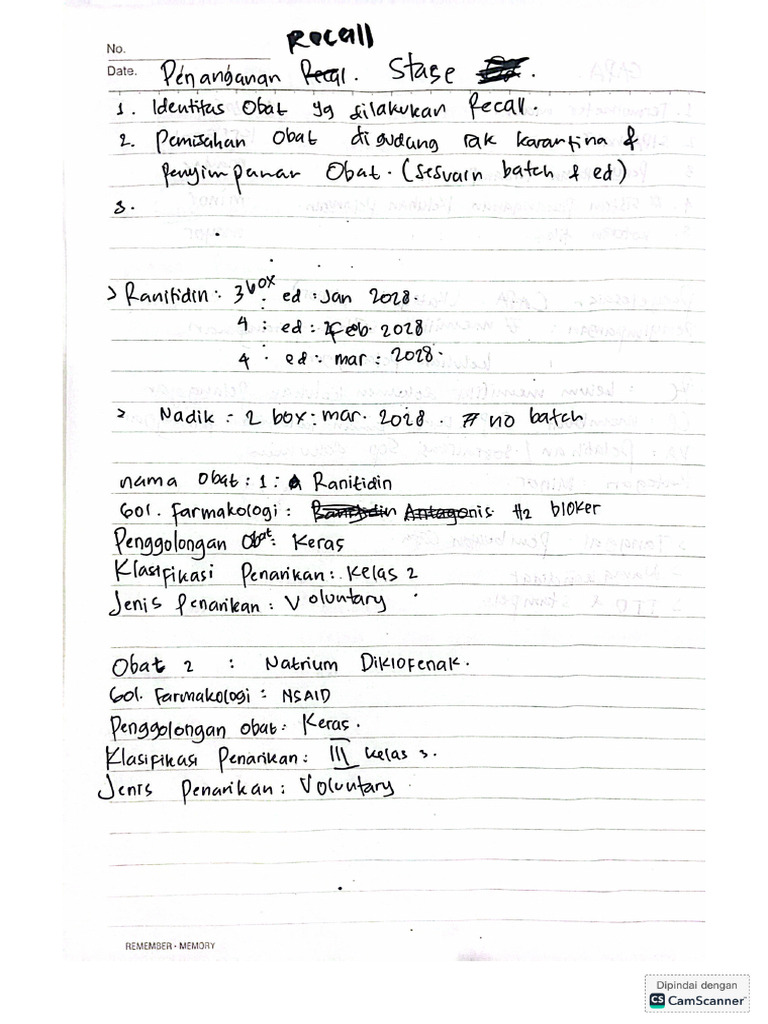 Recall
No.
Date. Penanganan Recal. Stase
1. Identitas Obat yg dilakukan Recall.
2. Pemisahan Obat digudang rak karantina &
penyimpanan Obat. (sesuain batch & ed)
3.
> Ranitidin : 3 box : ed : Jan 2028.
4 : ed : Feb 2028
4 . ed : mar : 2028.
> Nadik = 2 box : mar. 2028. # no batch
nama Obat : 1 : Ranitidin
Gol. Farmakologi : Ranitidin Antagonis H2 bloker
Penggolongan Obat : Keras
Klasifikasi Penarikan : Kelas 2
Jenis Penarikan : Voluntary
Obat 2 : Natrium Diklofenak.
Gol. Farmakologi : NSAID
Penggolongan obat : Keras.
Klasifikasi Penarikan : III kelas 3.
Jenis Penarikan : Voluntary
REMEMBER - MEMORY
Dipindai dengan
CS CamScanner